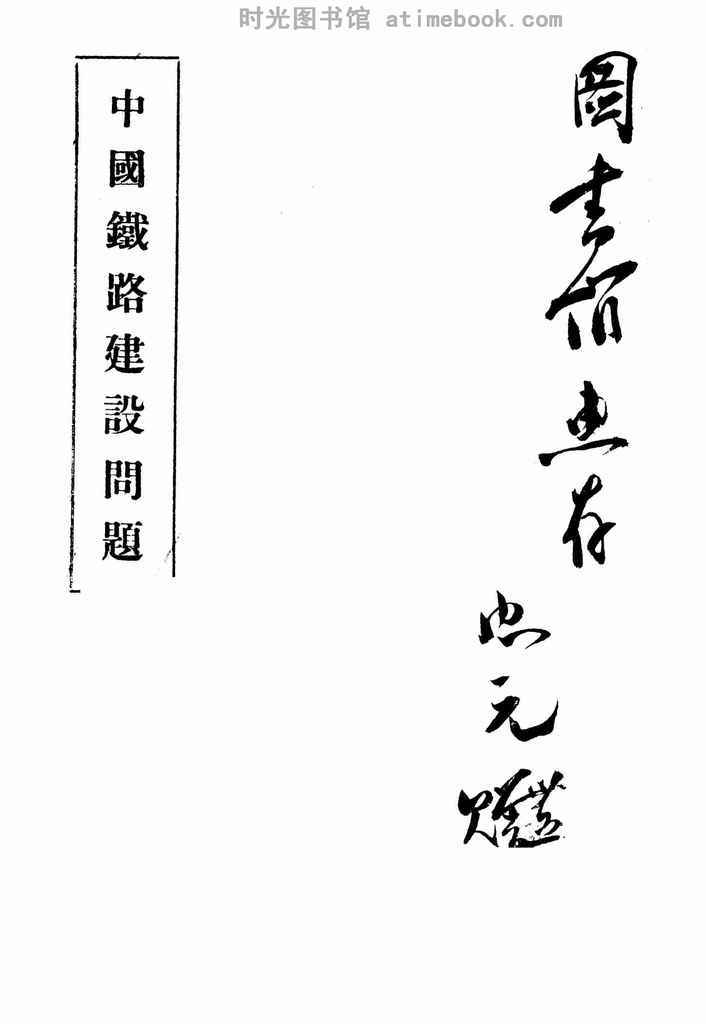 时光图书馆 atimebook.com
圖書館惠存
忠元
中國鐵路建設問題